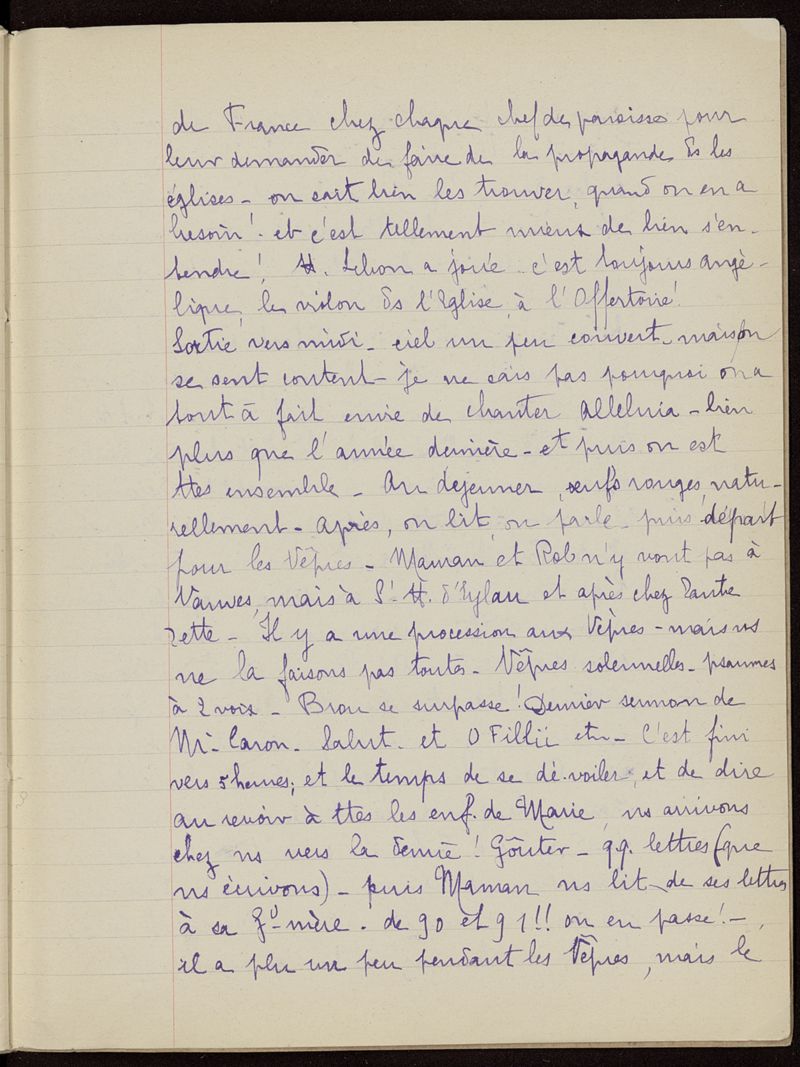 de France chez chaque chef de paroisse pour
leur demander de faire de la propagande ds les
églises – on sait bien les trouver, quand on en a
besoin! et c'est tellement mieux de bien s'en-
tendre! H. Lebon a joué – c'est toujours angé-
lique, le violon ds l'Eglise, à l'Offertoire!
Sortie vers midi – ciel un peu couvert – mais on
se sent content – je ne sais pas pourquoi on a
tout à fait envie de chanter Alleluia – bien
plus que l'année dernière – et puis on est
ttes ensemble – Au déjeuner, oeufs rouges, natu-
rellement – Après, on lit, on parle – puis départ
pour les Vêpres – Maman et Rob n'y vont pas à
Vanves, mais à St H. d'Eylau et après chez Tante
zette – Il y a une procession aux Vêpres – mais ns
ne la faisons pas toutes – Vêpres solennelles – psaumes
à 2 voix – Brou se surpasse! Dernier sermon de
Mr Caron. Salut. et O Filii etc – C'est fini
vers 5 heures; et le temps de se dé-voiler, et de dire
au revoir à ttes les enf. de Marie, ns arrivons
chez ns vers la demie! Goûter – qq. lettres (que
ns écrivons) – puis Maman ns lit de ses lettres
à sa Gd-mère – de 90 et 91!! on en passe! –
il a plu un peu pendant les Vêpres, mais le